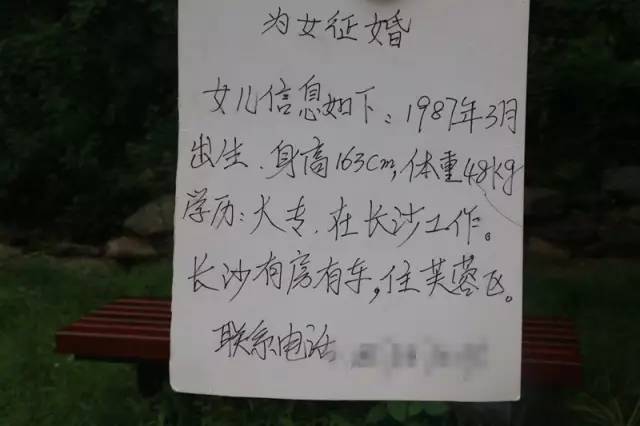 为女征婚
女儿信息如下：1987年3月
出生.身高163cm,体重48kg
学历：大专.在长沙工作。
长沙有房有车,住芙蓉区。
联系电话